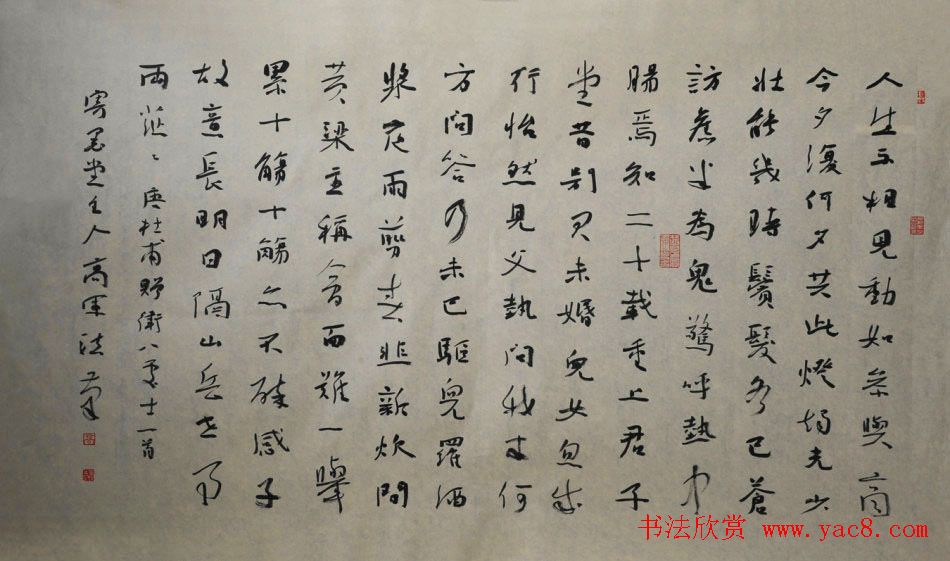 人生不相見動如參與商
今夕復何夕共此燈燭光少
壯能幾時鬢髮各已蒼
訪舊半為鬼驚呼熱中
腸焉知二十載重上君子
堂昔別君未婚兒女忽成
行怡然見父執問我來何
方問答乃未已驅兒羅酒
漿夜雨剪春韭新炊間
黃梁主稱會面難一舉
累十觴十觴亦不醉感子
故意長明日隔山岳世事
兩茫〻唐杜甫贈衛八處士一首
寄堂主人高軍法
书法欣赏 www.yac8.com